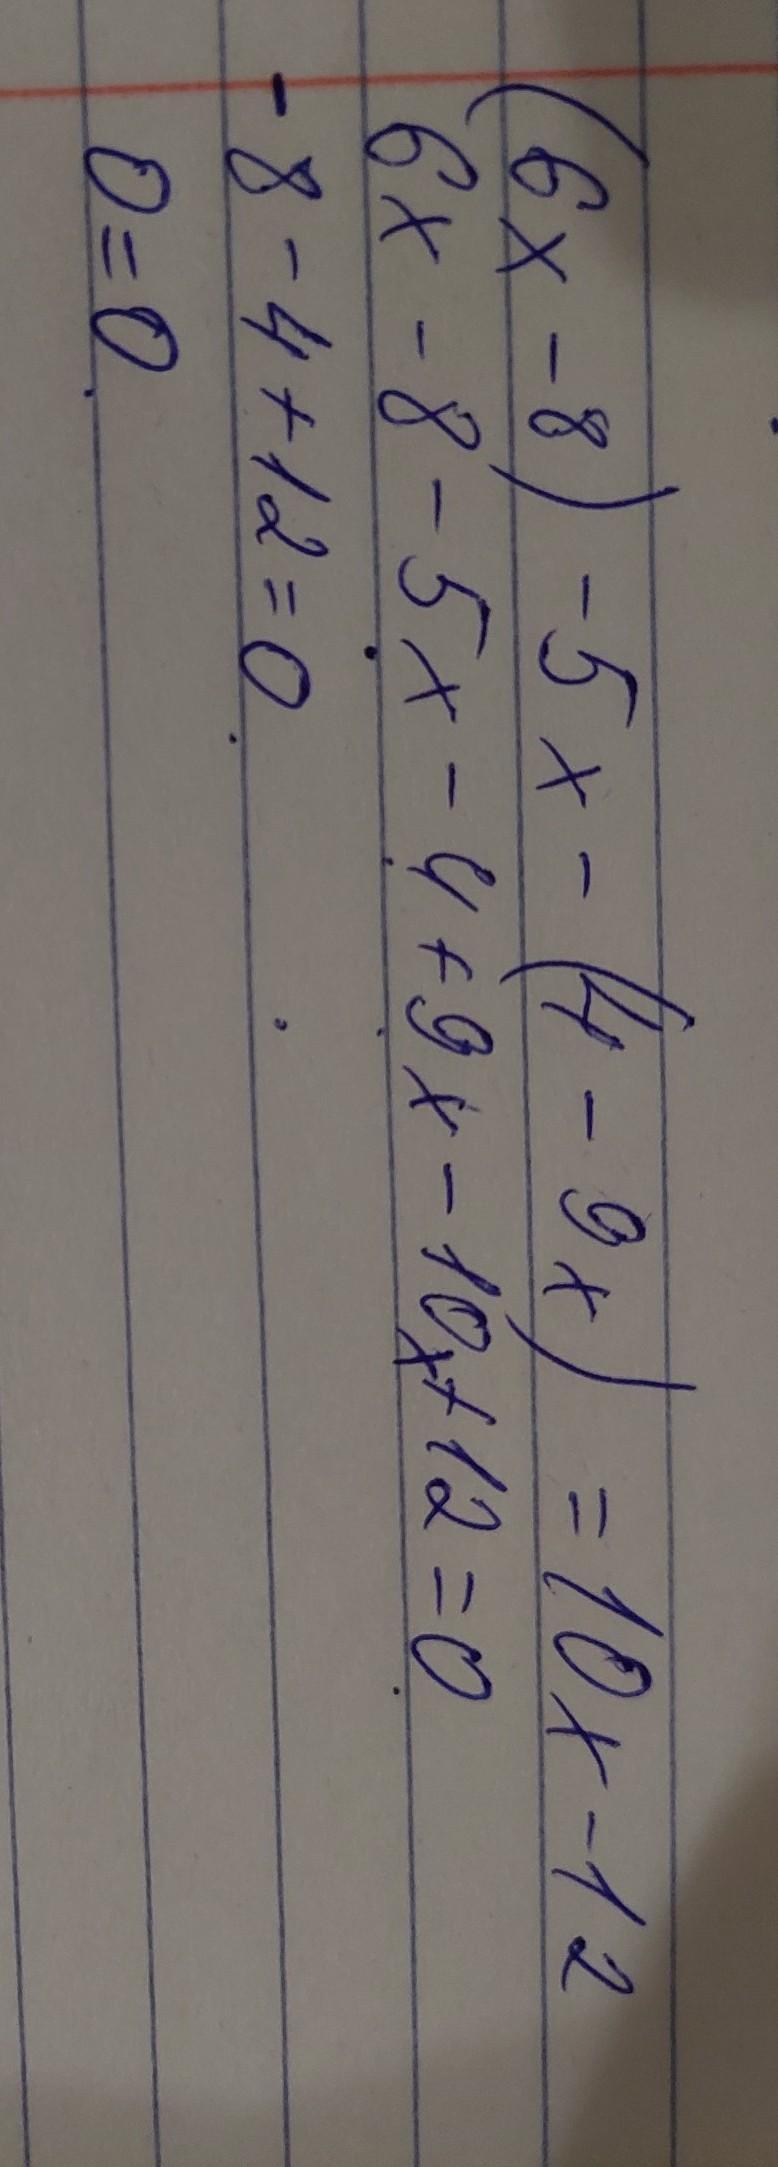 (6x - 8) - 5x - (4 - 9x) = 10x - 12
6x - 8 - 5x - 4 + 9x - 10x + 12 = 0
- 8 - 4 + 12 = 0
0 = 0